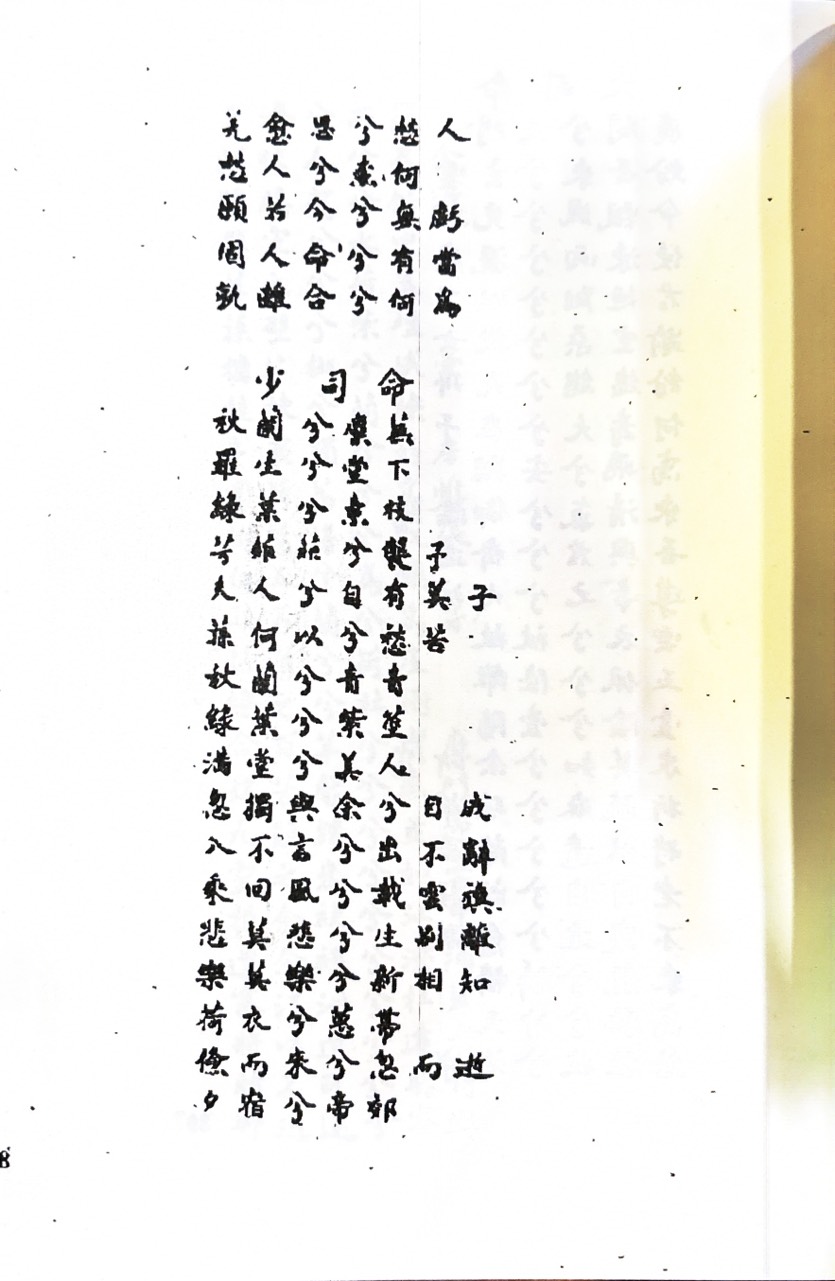 羌愈思兮愁人
愁人兮柰何
願若今兮無虧
固人命兮有當
孰離合兮何為
少司命
秋蘭兮麋蕪
羅生兮堂下
綠葉兮素枝
芳菲菲兮襲予
夫人兮自有美子
蓀何以兮愁苦
秋蘭兮青青
綠葉兮紫莖
滿堂兮美人
忽獨與余兮目成
入不言兮出不辭
乘回風兮載雲旗
悲莫悲兮生別離
樂莫樂兮新相知
荷衣兮蕙帶
儵而來兮忽而逝
夕宿兮帝郊
8